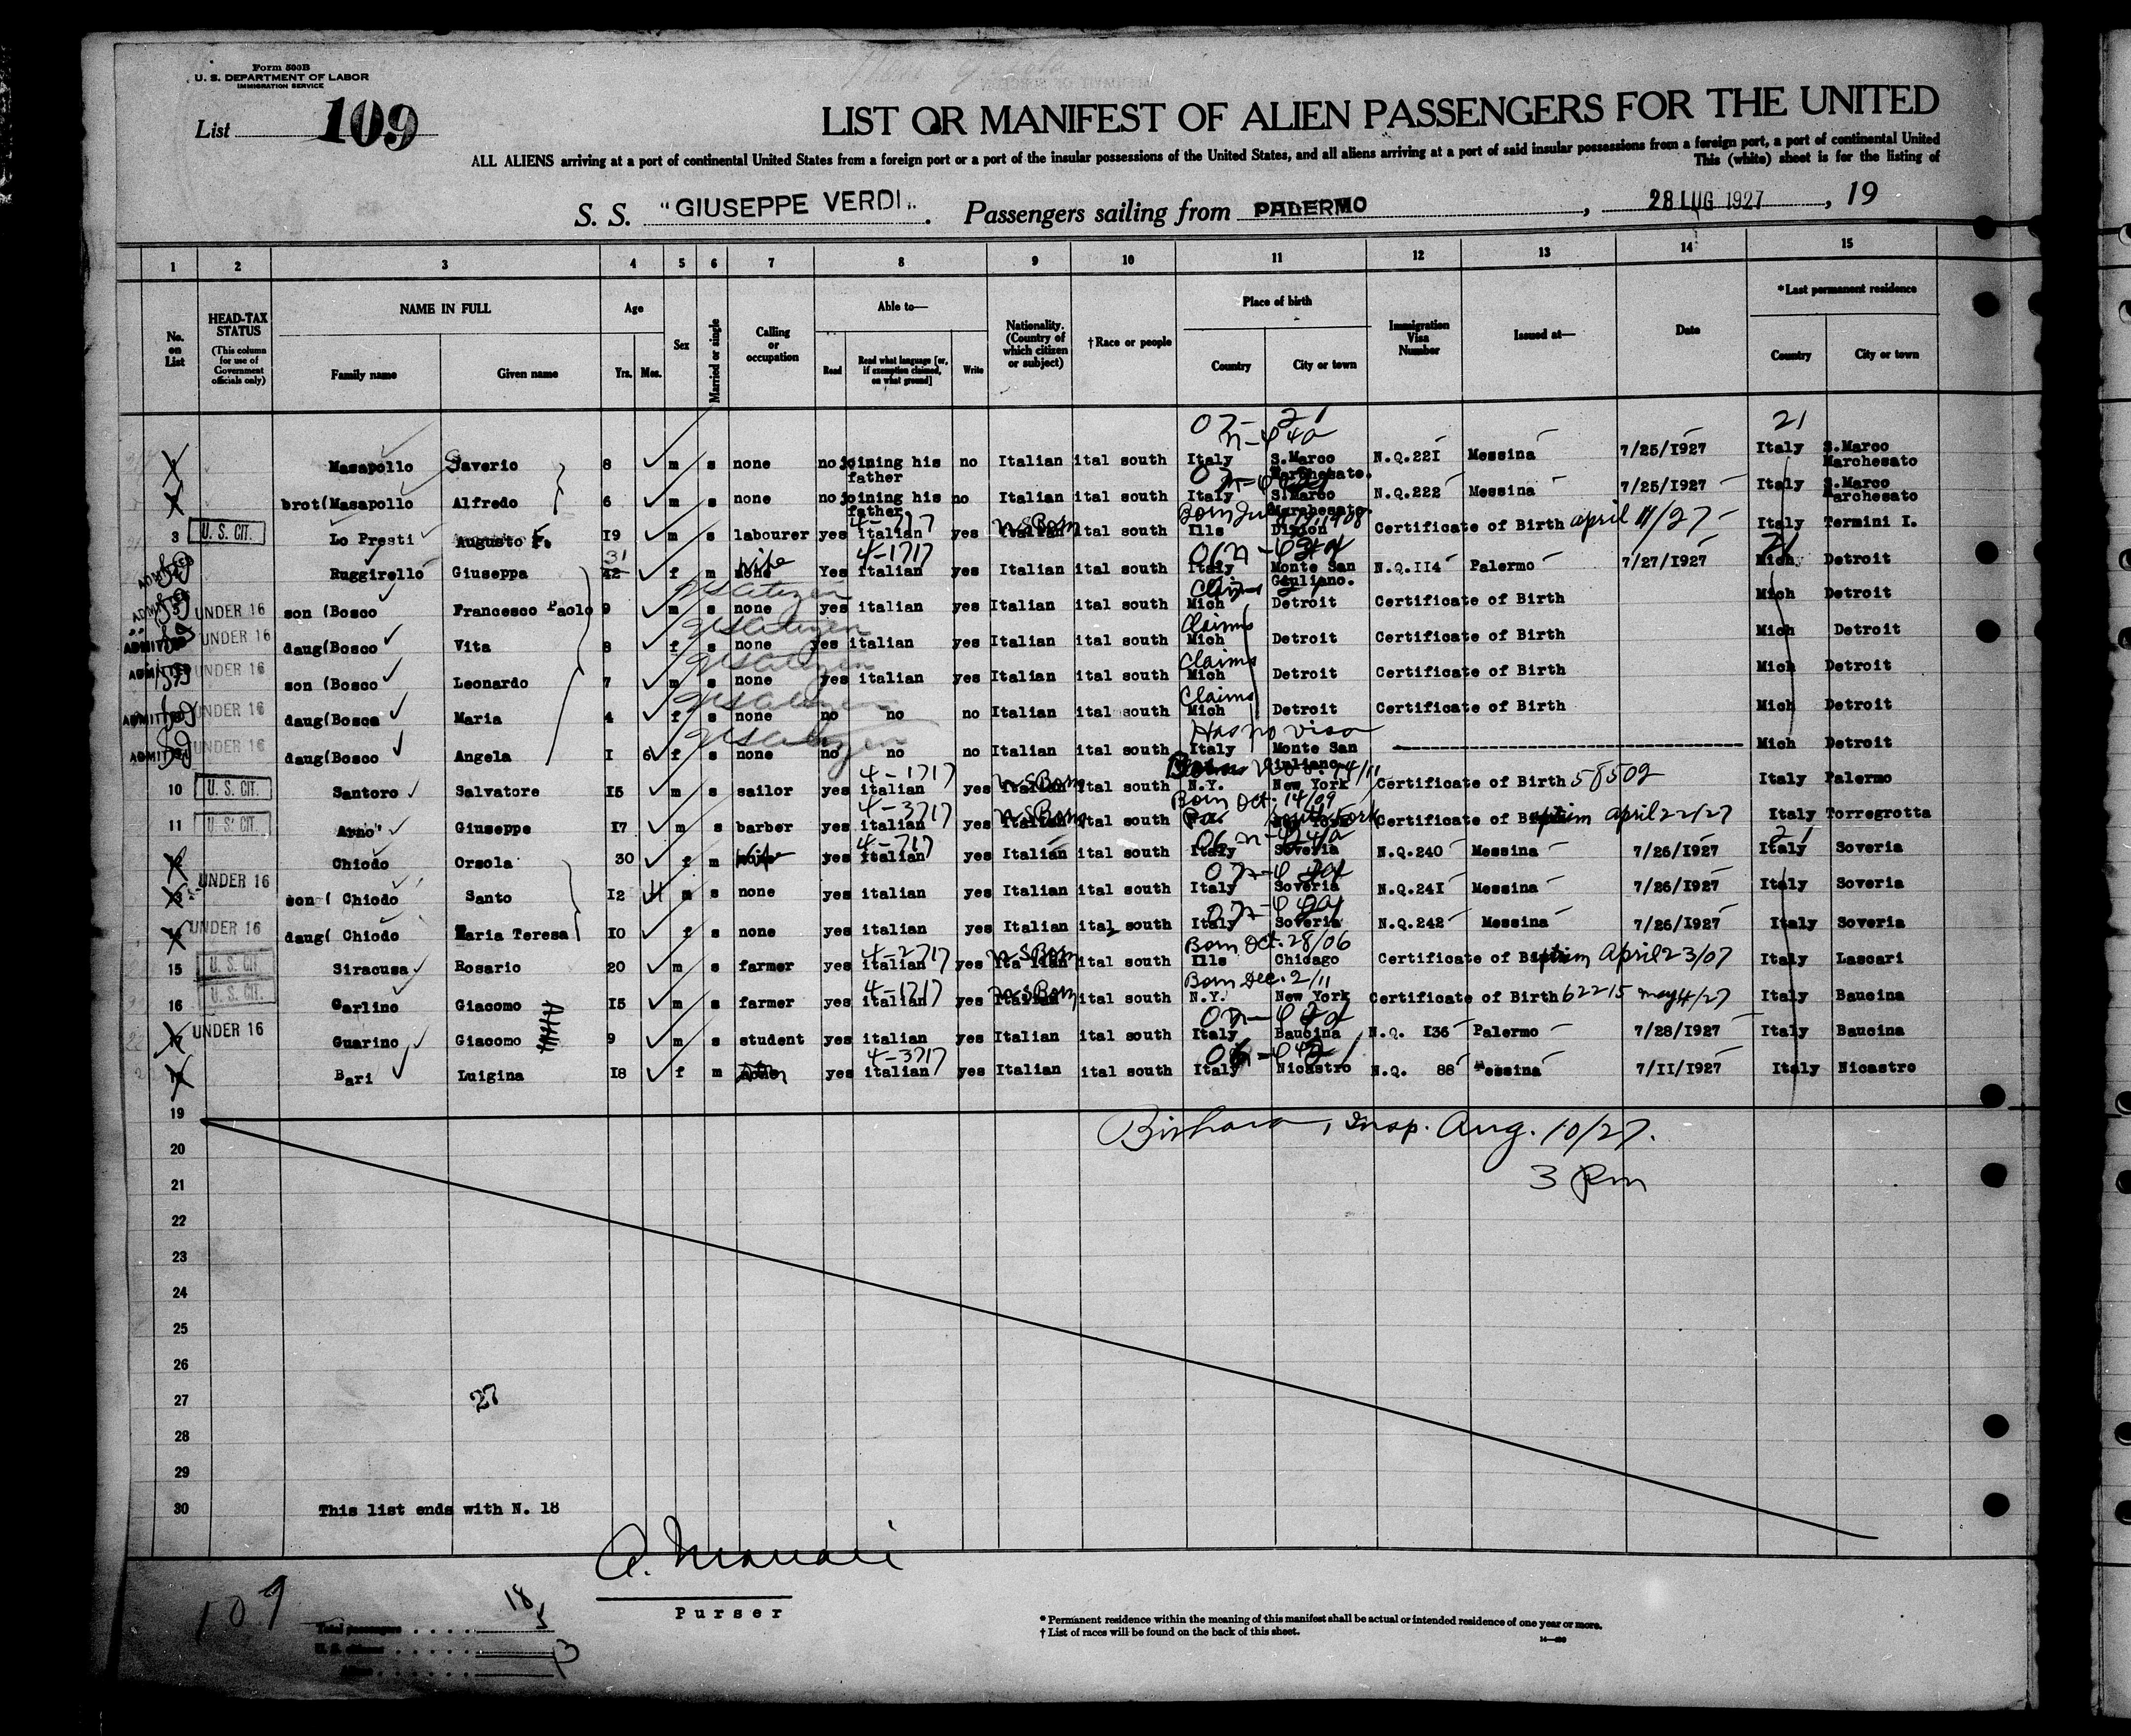 Form 500B
U. S. DEPARTMENT OF LABOR
IMMIGRATION SERVICE
List 109
LIST OR MANIFEST OF ALIEN PASSENGERS FOR THE UNITED
ALL ALIENS arriving at a port of continental United States from a foreign port or a port of the insular possessions of the United States, and all aliens arriving at a port of said insular possessions from a foreign port, a port of continental United
This (white) sheet is for the listing of
S. S. "GIUSEPPE VERDI". Passengers sailing from PALERMO, 28 LUG 1927, 19
1 2 3 4 5 6 7 8 9 10 11 12 13 14 15
No. on List
HEAD-TAX STATUS (This column for use of Government officials only)
NAME IN FULL
Family name Given name
Age
Yrs. Mos.
Sex
Married or single
Calling or occupation
Able to—
Read Read what language [or, if exemption claimed, on what ground] Write
Nationality. (Country of which citizen or subject)
†Race or people
Place of birth
Country City or town
Immigration Visa Number
Issued at—
Date
*Last permanent residence
Country City or town
21
Masapollo Saverio 8 m s none no joining his father no Italian ital south Italy S.Marco Marchesato. N.Q.221 Messina 7/25/1927 Italy S.Marco Marchesato
brot(Masapollo Alfredo 6 m s none no joining his father no Italian ital south Italy S.Marco Marchesato. N.Q.222 Messina 7/25/1927 Italy S.Marco Marchesato
3 U. S. CIT. Lo Presti Augusto F. 19 m s labourer yes italian yes Italian ital south Ills Dixion Certificate of Birth april 11/27 Italy Termini I.
ADMITTED Ruggirello Giuseppa 31 42 f m none wife Yes italian 4-1717 yes Italian ital south Italy Monte San Giuliano. N.Q.114 Palermo 7/27/1927 Mich Detroit
5 UNDER 16 son (Bosco Francesco Paolo 9 m s none US citizen yes italian yes Italian ital south Claims Mich Detroit Certificate of Birth Mich Detroit
ADMITTED UNDER 16 daug(Bosco Vita 8 f s none US citizen yes italian yes Italian ital south Claims Mich Detroit Certificate of Birth Mich Detroit
ADMITTED UNDER 16 son (Bosco Leonardo 7 m s none US citizen yes italian yes Italian ital south Claims Mich Detroit Certificate of Birth Mich Detroit
ADMITTED UNDER 16 daug(Bosco Maria 4 f s none US citizen no no no Italian ital south Claims Mich Detroit Certificate of Birth Mich Detroit
ADMITTED UNDER 16 daug(Bosco Angela 1 6 f s none US citizen no no no Italian ital south Has no visa Italy Monte San Giuliano Mich Detroit
10 U. S. CIT. Santoro Salvatore 15 m s sailor yes italian 4-1717 yes Italian U S Born ital south N.Y. New York Certificate of Birth 58502 Italy Palermo
11 U. S. CIT. Arno' Giuseppe 17 m s barber yes italian 4-3717 yes Italian U S Born ital south Born Oct. 14/09 Certificate of April 22/27 Italy Torregrotta
Chiodo Orsola 30 f m yes italian 4-717 yes Italian ital south Italy Soveria N.Q.240 Messina 7/26/1927 Italy Soveria
UNDER 16 son ( Chiodo Santo 12 m s none yes italian yes Italian ital south Italy Soveria N.Q.241 Messina 7/26/1927 Italy Soveria
UNDER 16 daug( Chiodo Maria Teresa 10 f s none yes italian yes Italian ital south Italy Soveria N.Q.242 Messina 7/26/1927 Italy Soveria
15 U. S. CIT. Siracusa Rosario 20 m s farmer yes italian 4-2717 yes Italian U S Born ital south Born Oct. 28/06 Ills Chicago Certificate of April 23/07 Italy Lascari
16 U. S. CIT. Carlino Giacomo 15 m s farmer yes italian 4-1717 yes Italian U S Born ital south Born Dec. 2/11 N.Y. New York Certificate of Birth 62215 may 4/27 Italy Baucina
UNDER 16 Guarino Giacomo 9 m s student yes italian yes Italian ital south Italy Baucina N.Q. 136 Palermo 7/28/1927 Italy Baucina
Bari Luigina 18 f m yes italian 4-3717 yes Italian ital south Italy Nicastro N.Q. 88 Messina 7/11/1927 Italy Nicastro
19
Insp. Aug. 10/27.
20
3 Pm
21
22
23
24
25
26
27 27
28
29
30 This list ends with N. 18
Purser
109
Total passengers 18
U. S. citizens 5
Aliens 13
* Permanent residence within the meaning of this manifest shall be actual or intended residence of one year or more.
† List of races will be found on the back of this sheet.